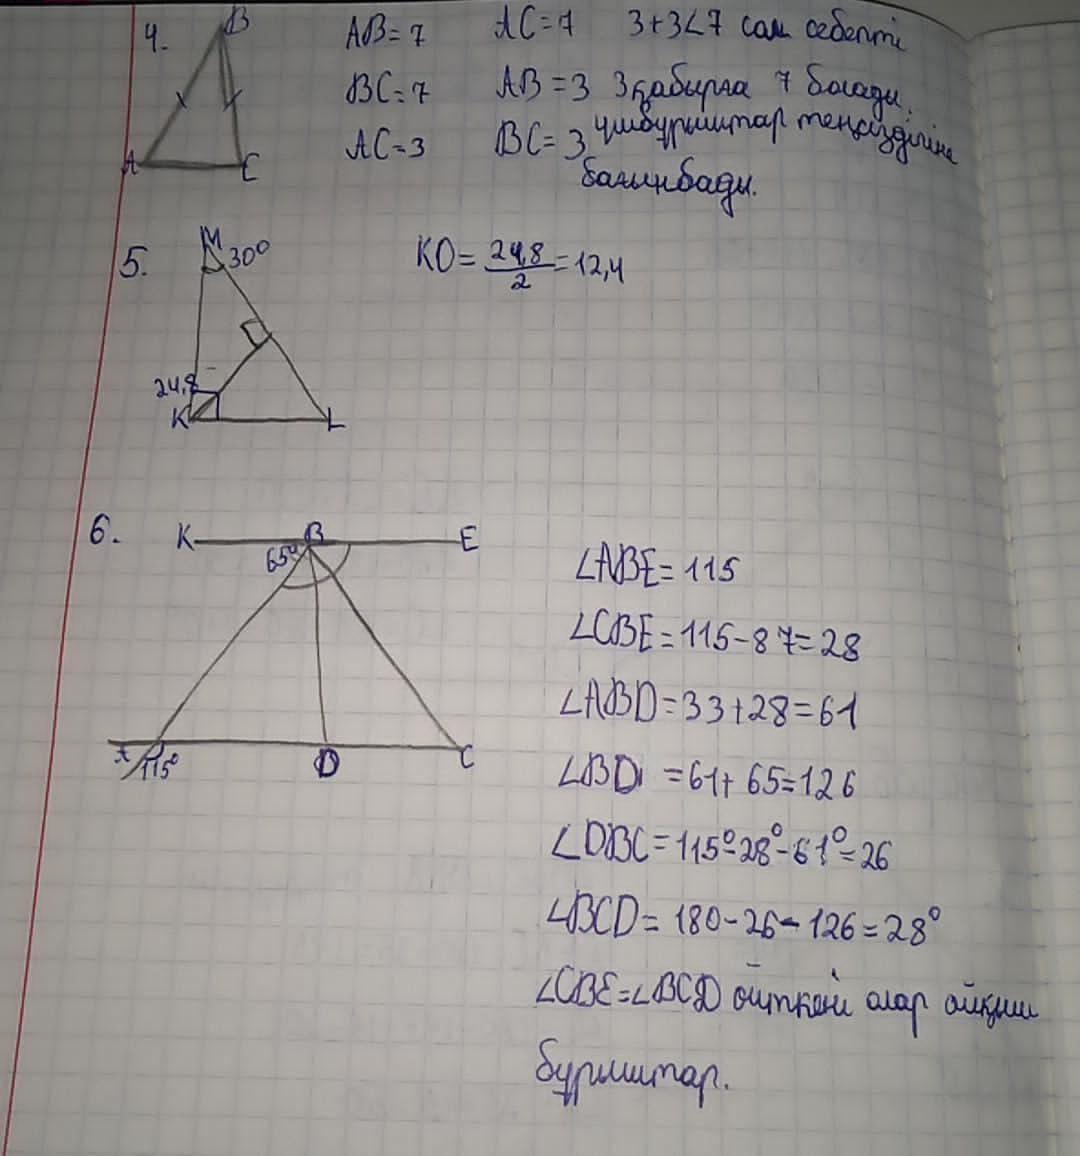 4. B AB = 7 AC = 7 3+3<7 сол себепті
BC = 7 AB = 3 3қабырға 7 болады.
A C AC = 3 BC = 3 үшбұрыштар теңсіздігіне
бағынбады.
5. M 30° KO = 24,8/2 = 12,4
24,8
K L
6. K B E
65°
∠ABE = 115
∠CBE = 115 - 87 = 28
∠ABD = 33 + 28 = 61
A 115° D C
∠BD = 61 + 65 = 126
∠DBC = 115° - 28° - 61° = 26
∠BCD = 180 - 26 - 126 = 28°
∠CBE = ∠BCD өйткені олар айқыш
бұрыштар.